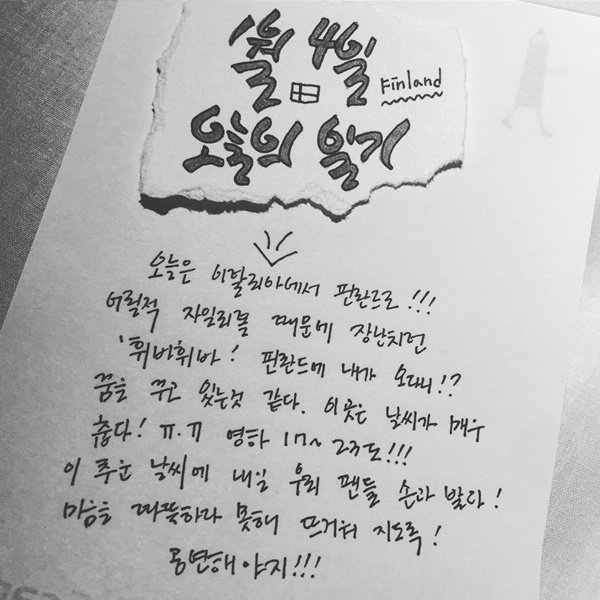 월 4일 Finland
오늘의 일기
오늘은 이탈리아에서 핀란드로!!!
어릴적 자일리톨 때문에 장난치던
'휘바휘바! 핀란드에 내가 오다니!?
꿈을 꾸고 있는것 같다. 이곳은 날씨가 매우
춥다! ㅠ.ㅠ 영하 17~23도!!!
이 추운 날씨에 내일 우리 팬들 손과 발과!
마음을 따뜻하다 못해 뜨거워 지도록!
공연해야지!!!